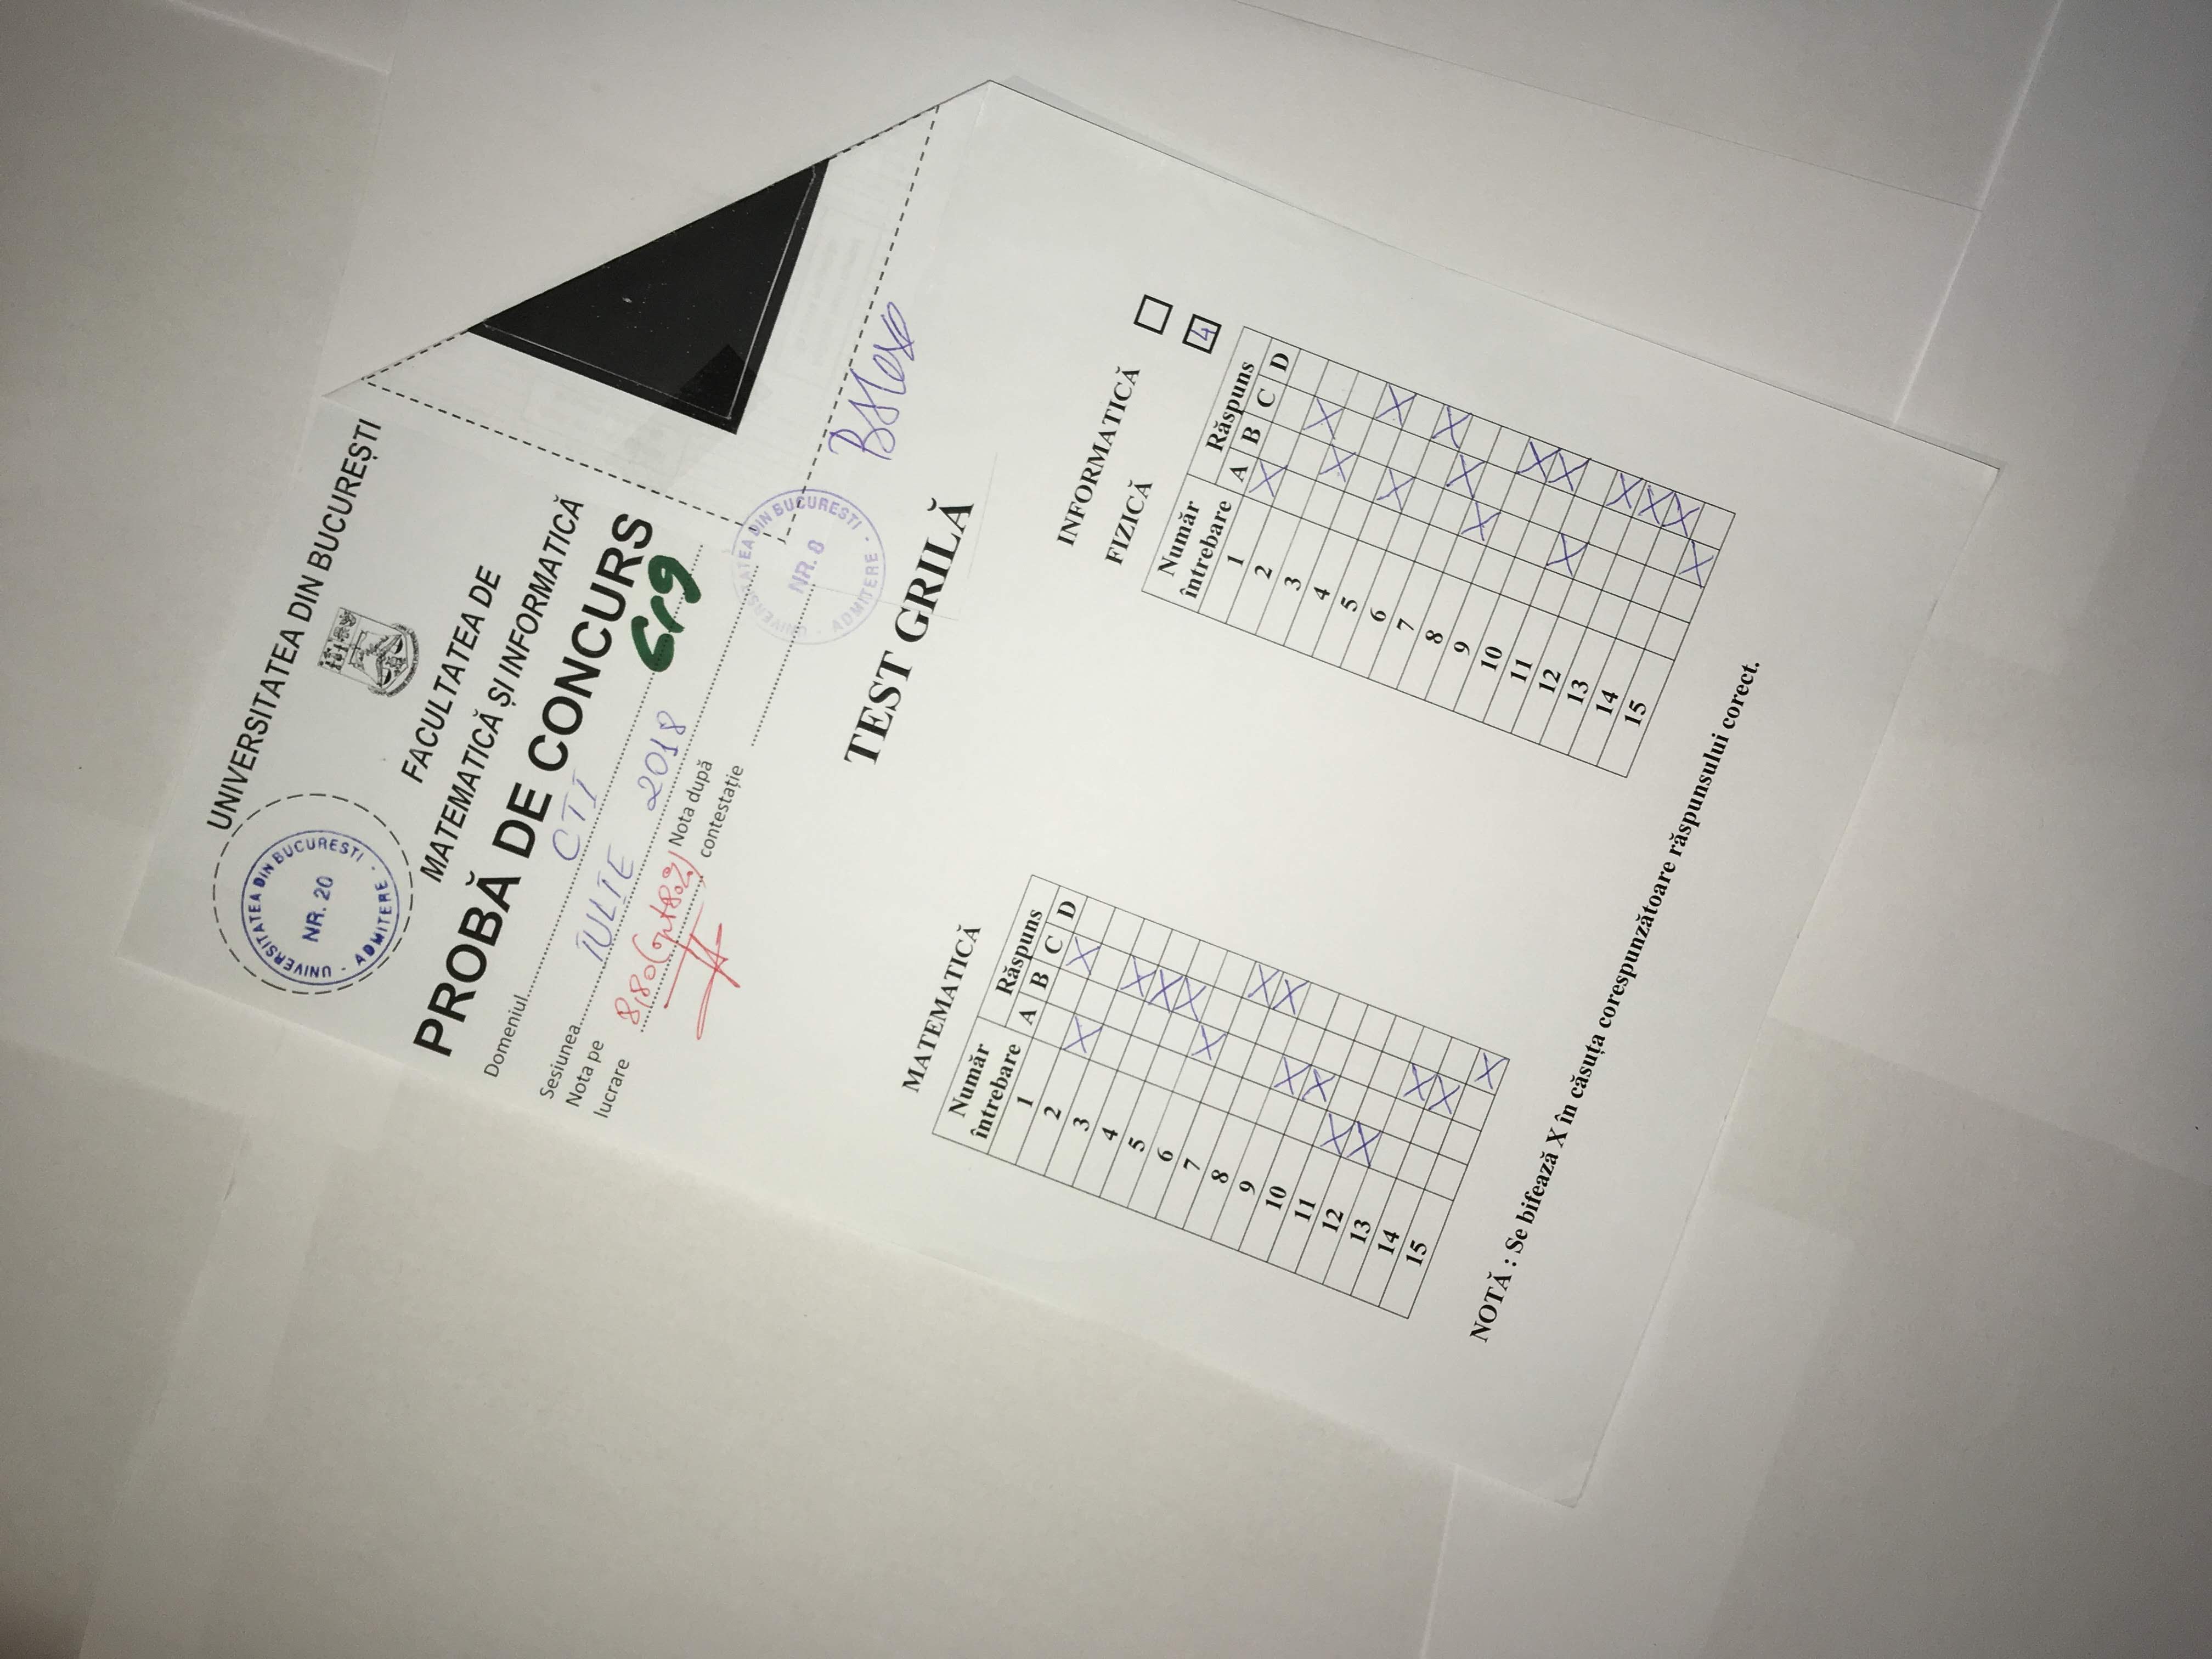 UNIVERSITATEA DIN BUCUREȘTI
UNIVERSITATEA DIN BUCURESTI
NR. 20
ADMITERE
FACULTATEA DE
MATEMATICĂ ȘI INFORMATICĂ
PROBĂ DE CONCURS
Domeniul CTI
C19
Sesiunea IULIE 2018
Nota pe
lucrare 8,80 (opt 80%)
Nota după
contestație
UNIVERSITATEA DIN BUCURESTI
NR. 8
ADMITERE
TEST GRILĂ
MATEMATICĂ
Număr
întrebare
Răspuns
A B C D
1
2 X X
3
4 X
5 X
6 X X
7
8 X
9 X X
10 X
11 X
12 X
13 X
14 X
15 X
INFORMATICĂ
FIZICĂ 4
Număr
întrebare
Răspuns
A B C D
1 X
2
3 X
4 X
5 X
6 X
7 X
8 X
9 X
10 X
11 X
12 X
13 X
14 X
15 X
NOTĂ : Se bifează X în căsuța corespunzătoare răspunsului corect.